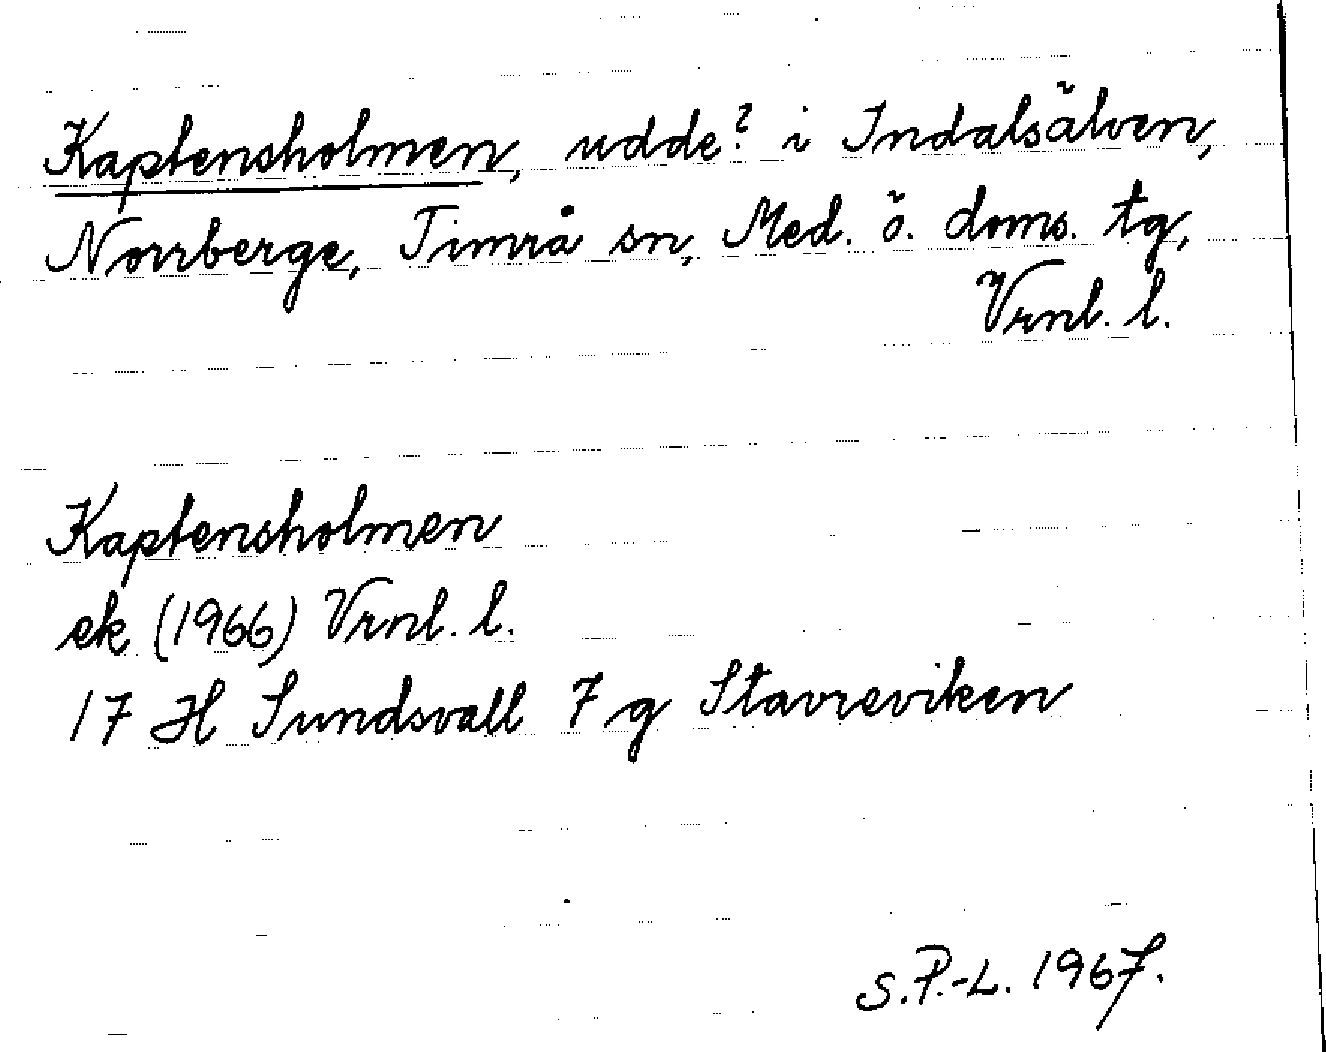 Kaptensholmen, udde? i Indalsälven,
Norrberge, Timrå sn, Med. ö. doms. tg,
Vrnl. l.
Kaptensholmen
ek (1966) Vrnl. l.
17 H Sundsvall 7 g Stavreviken
S.P.-L. 1967.